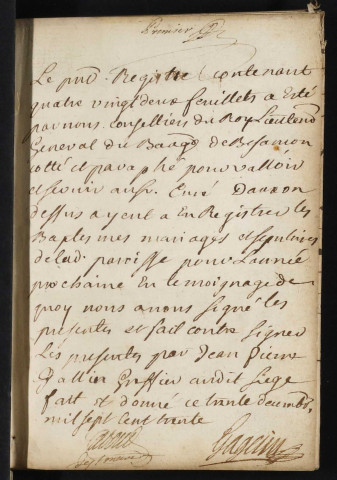 Premier
Le pnt Registre Contenant
quatre vingt deux feuillets a esté
par nous Conseillier du Roy Lieutent
General du Baage de Besancon
cotté et paraphé pour valloir
et servir au sr Curé
dessus ayent a En Registrer les
Baptes mes mariages et sepultures
de lad. paroisse pour L'année
prochaine En temoignage de
quoy nous avons signé les
presentes et fait contre signer
Les presentes par Jean Pierre
Greffier audit siege
fait et donné ce trente decembre
mil sept cent trente